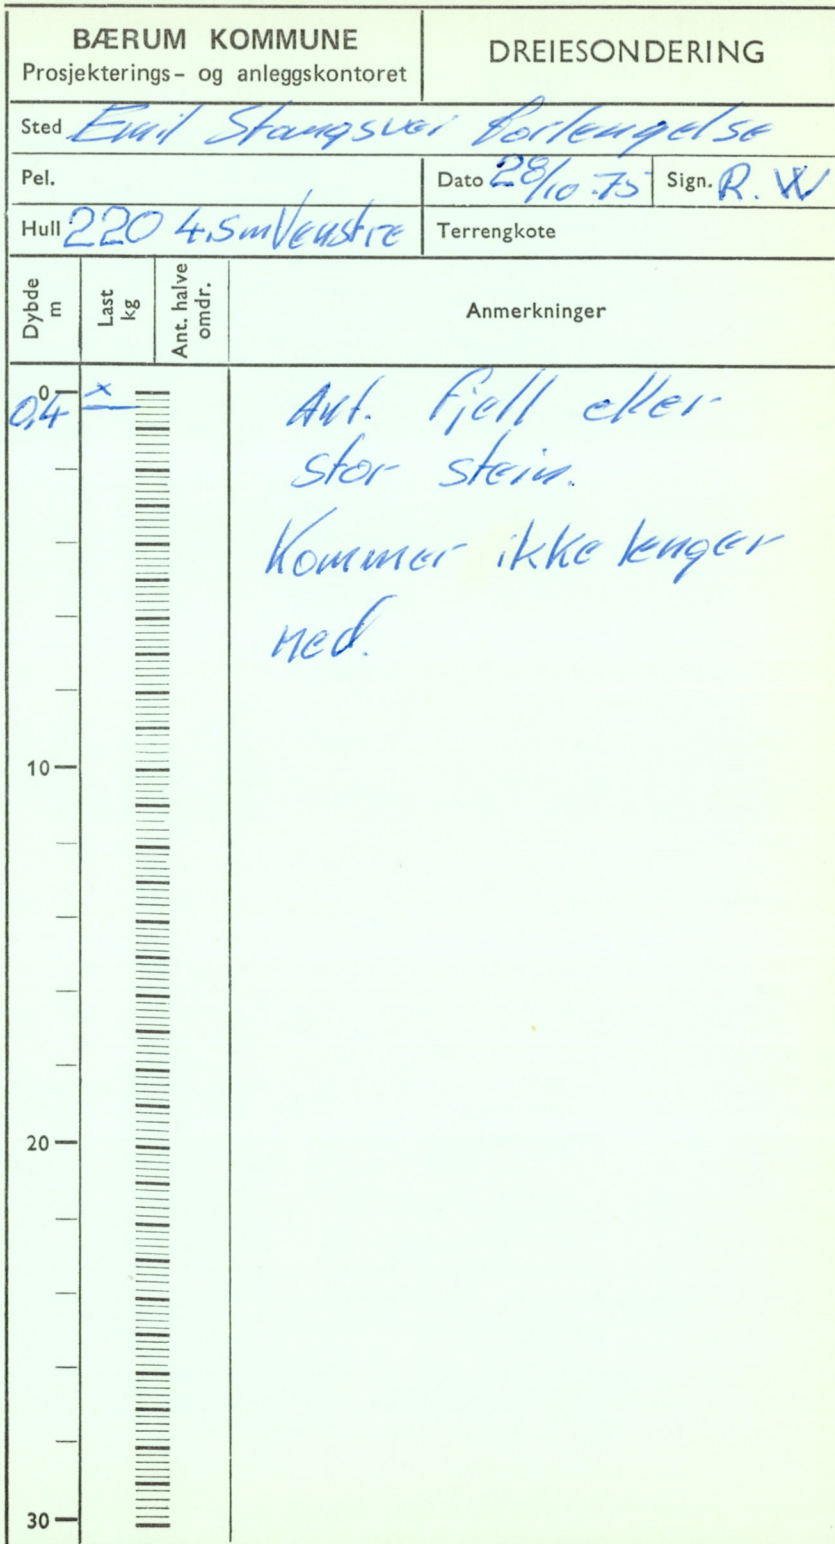 BÆRUM KOMMUNE
Prosjekterings- og anleggskontoret
DREIESONDERING
Sted Emil Stangsvei forlengelse
Pel.
Dato 28/10-75
Sign. R. W
Hull 220 4.5m Venstre
Terrengkote
Dybde m
Last kg
Ant. halve omdr.
Anmerkninger
0
0,4 x
Ant. fjell eller
stor stein.
Kommer ikke lenger
ned.
10
20
30